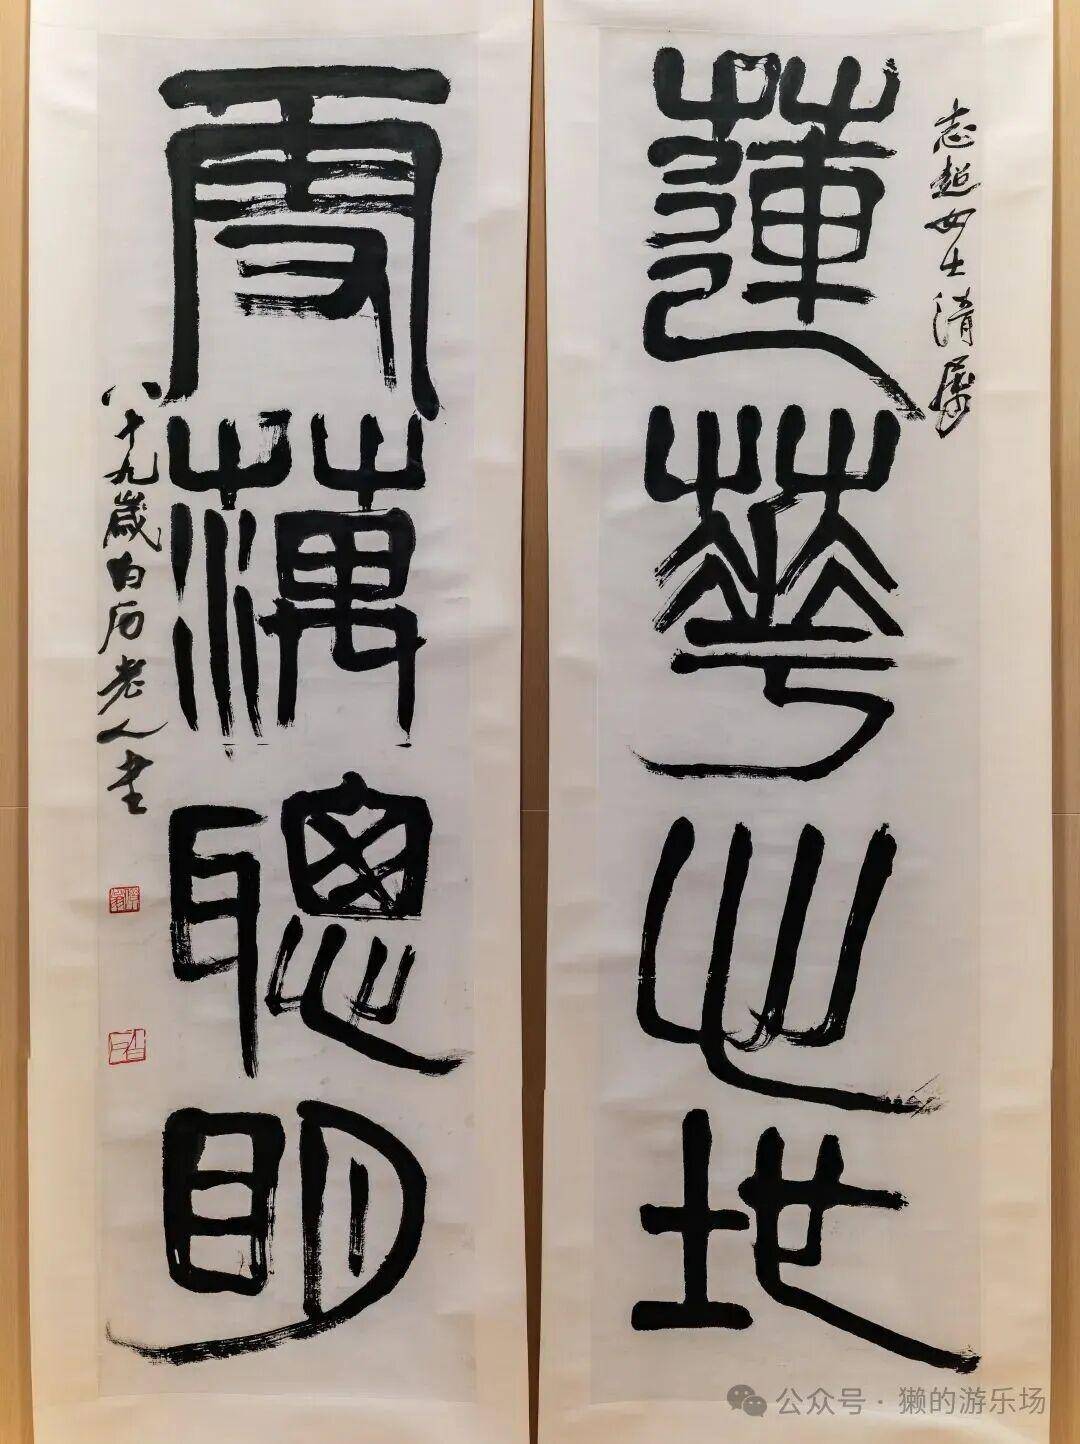 志超女士清屬
蓮華心地
雪蕅聰明
八十九歲白石老人書
公众号 · 獭的游乐场